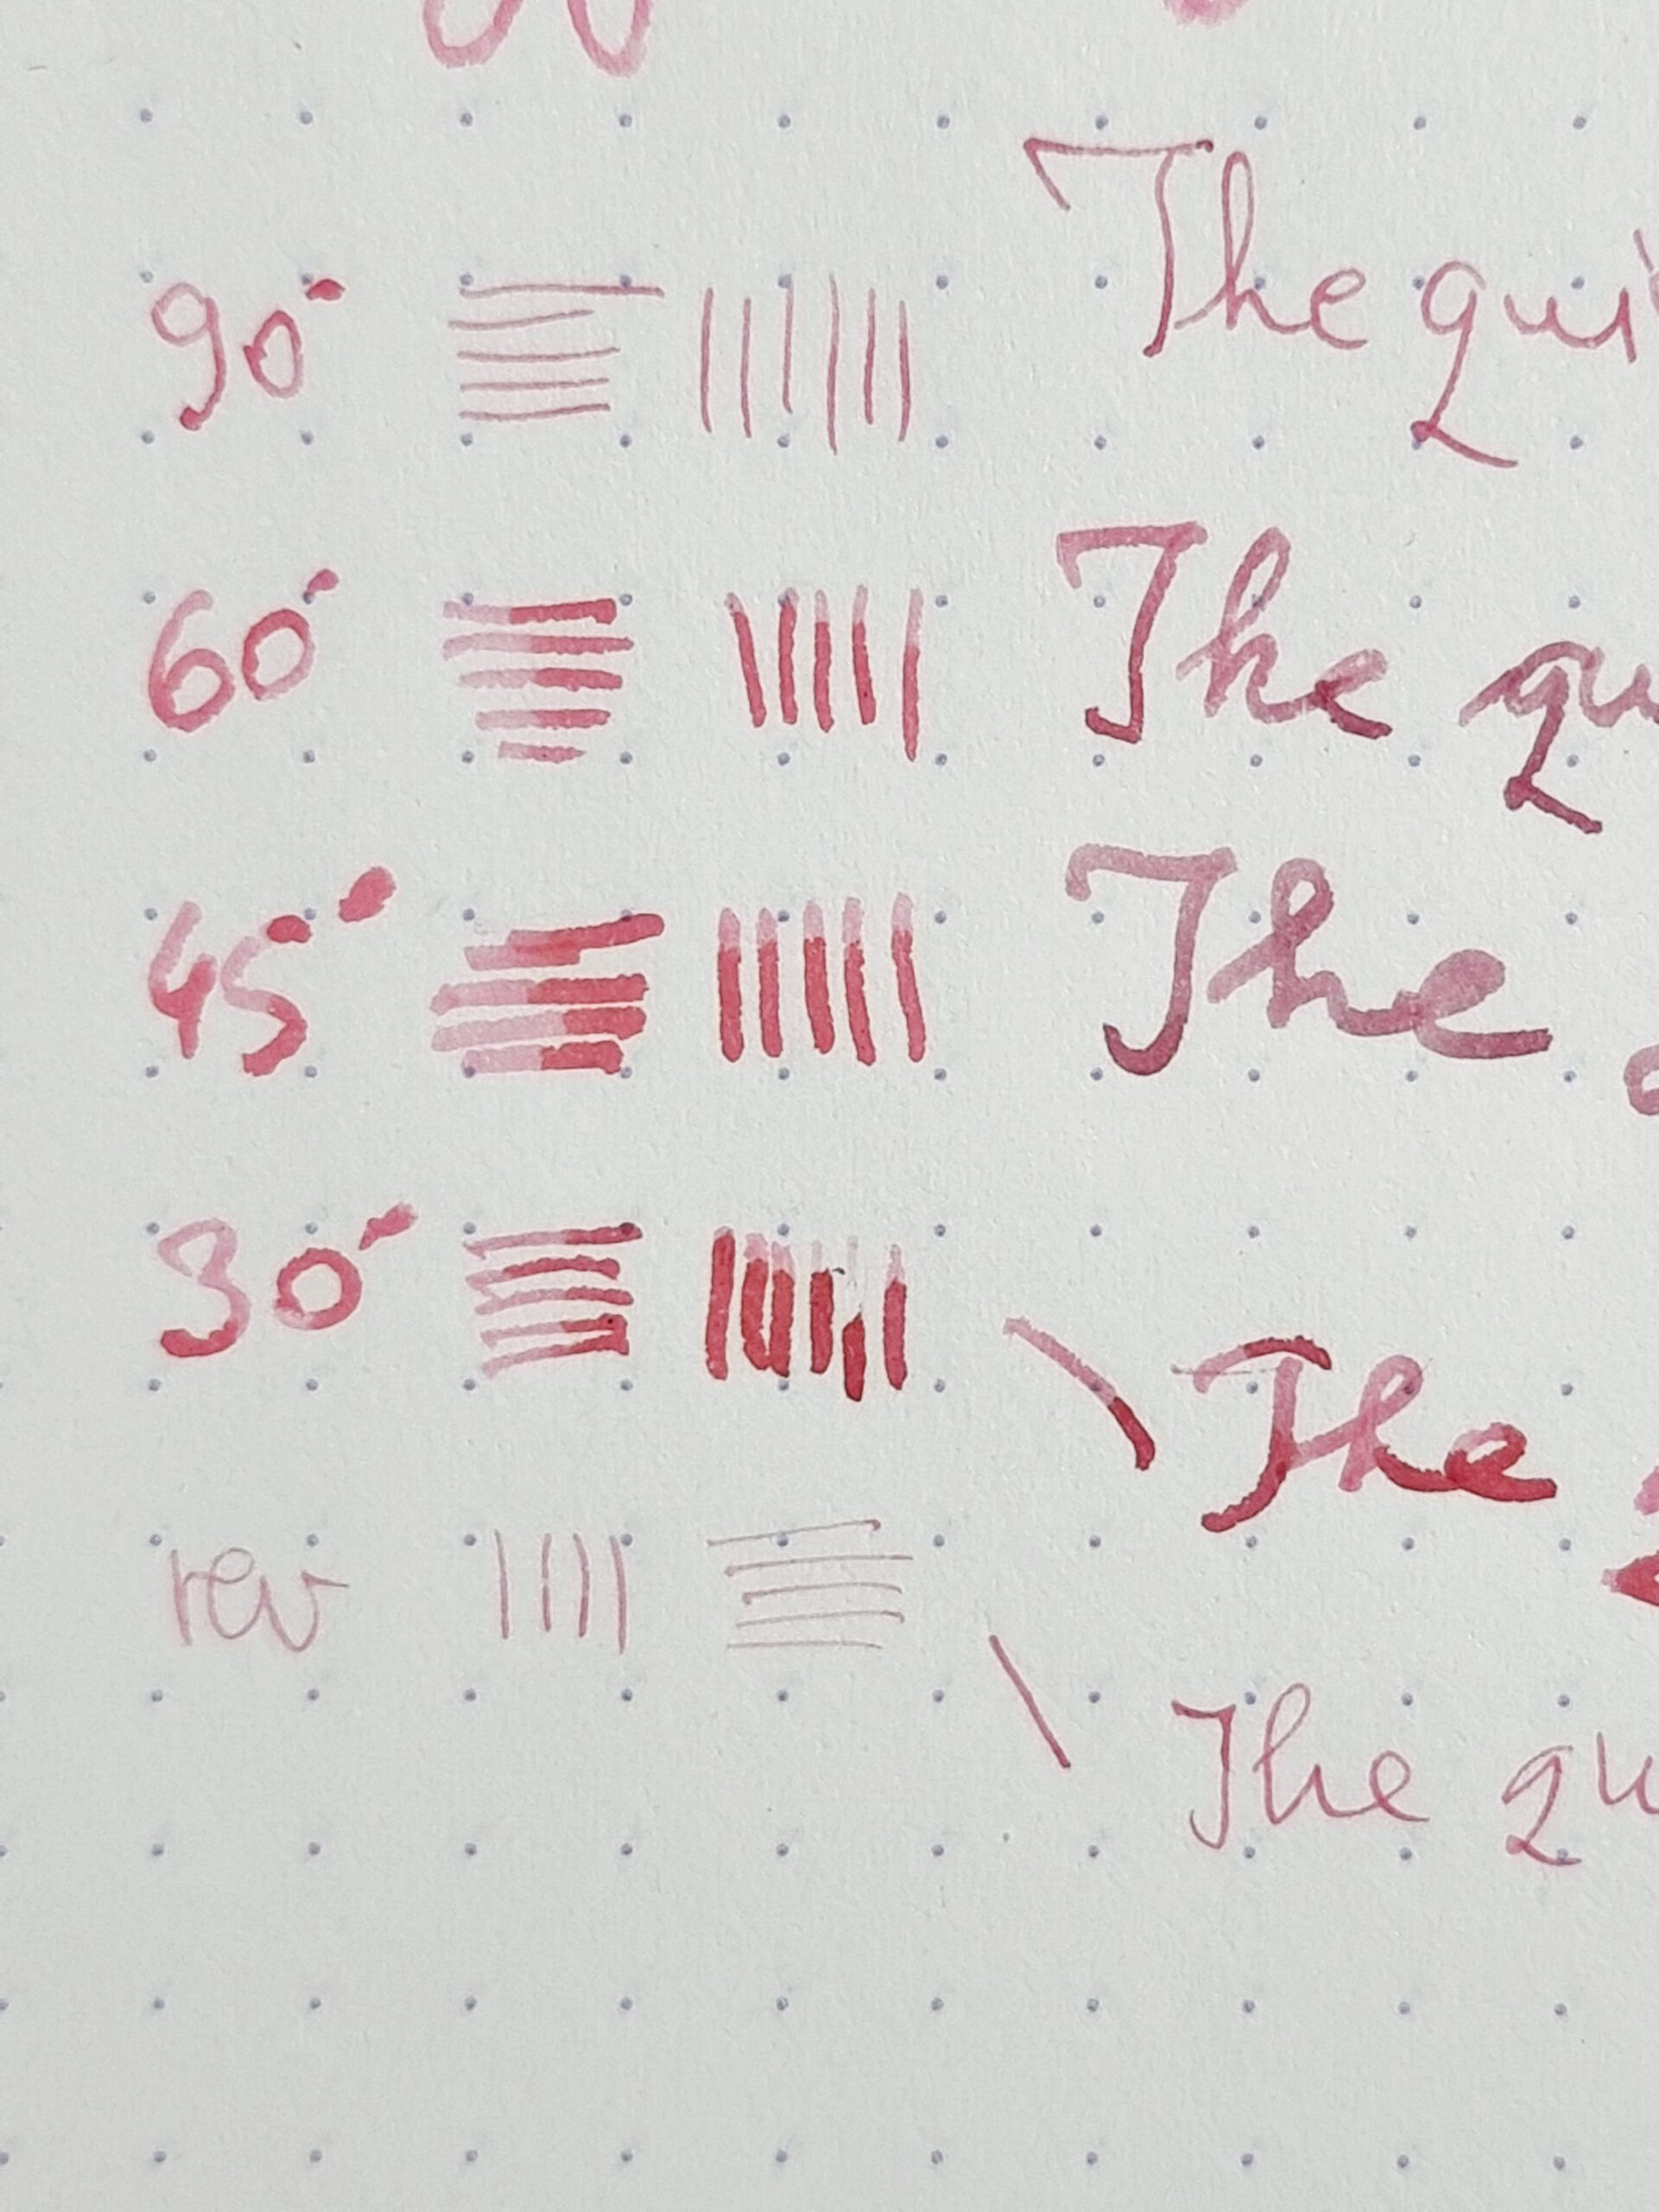 90° The qui
60° The qu
45° The
30° The
rev The qu